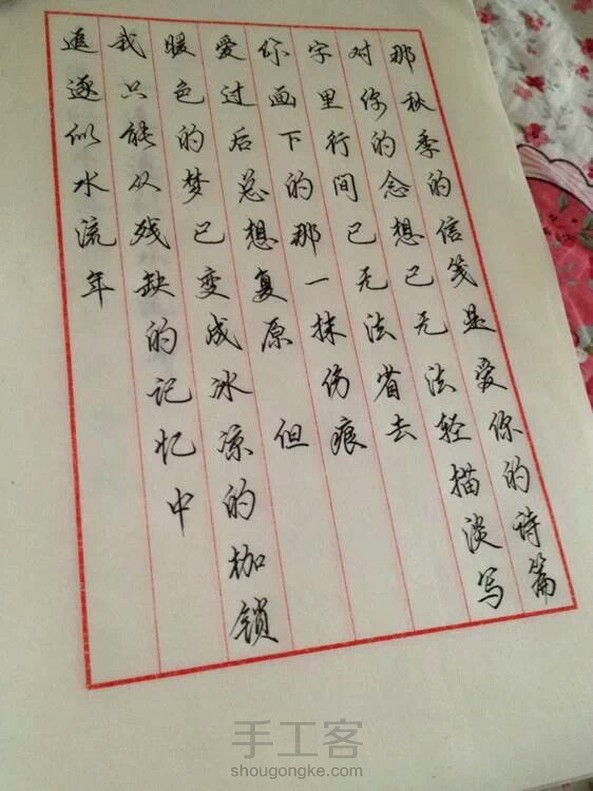 那秋季的信笺是爱你的诗篇
对你的念想已无法轻描淡写
字里行间已无法省去
你画下的那一抹伤痕
爱过后总想复原 但
暖色的梦已变成冰凉的枷锁
我只能从残缺的记忆中
追逐似水流年
手工客
shougongke.com